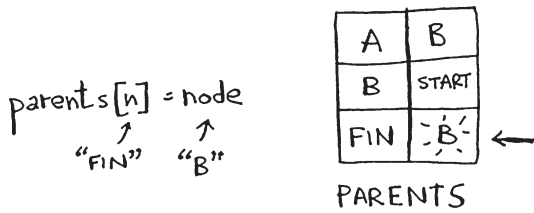 parents[n] = node
"FIN" "B"
A B
B START
FIN B
PARENTS